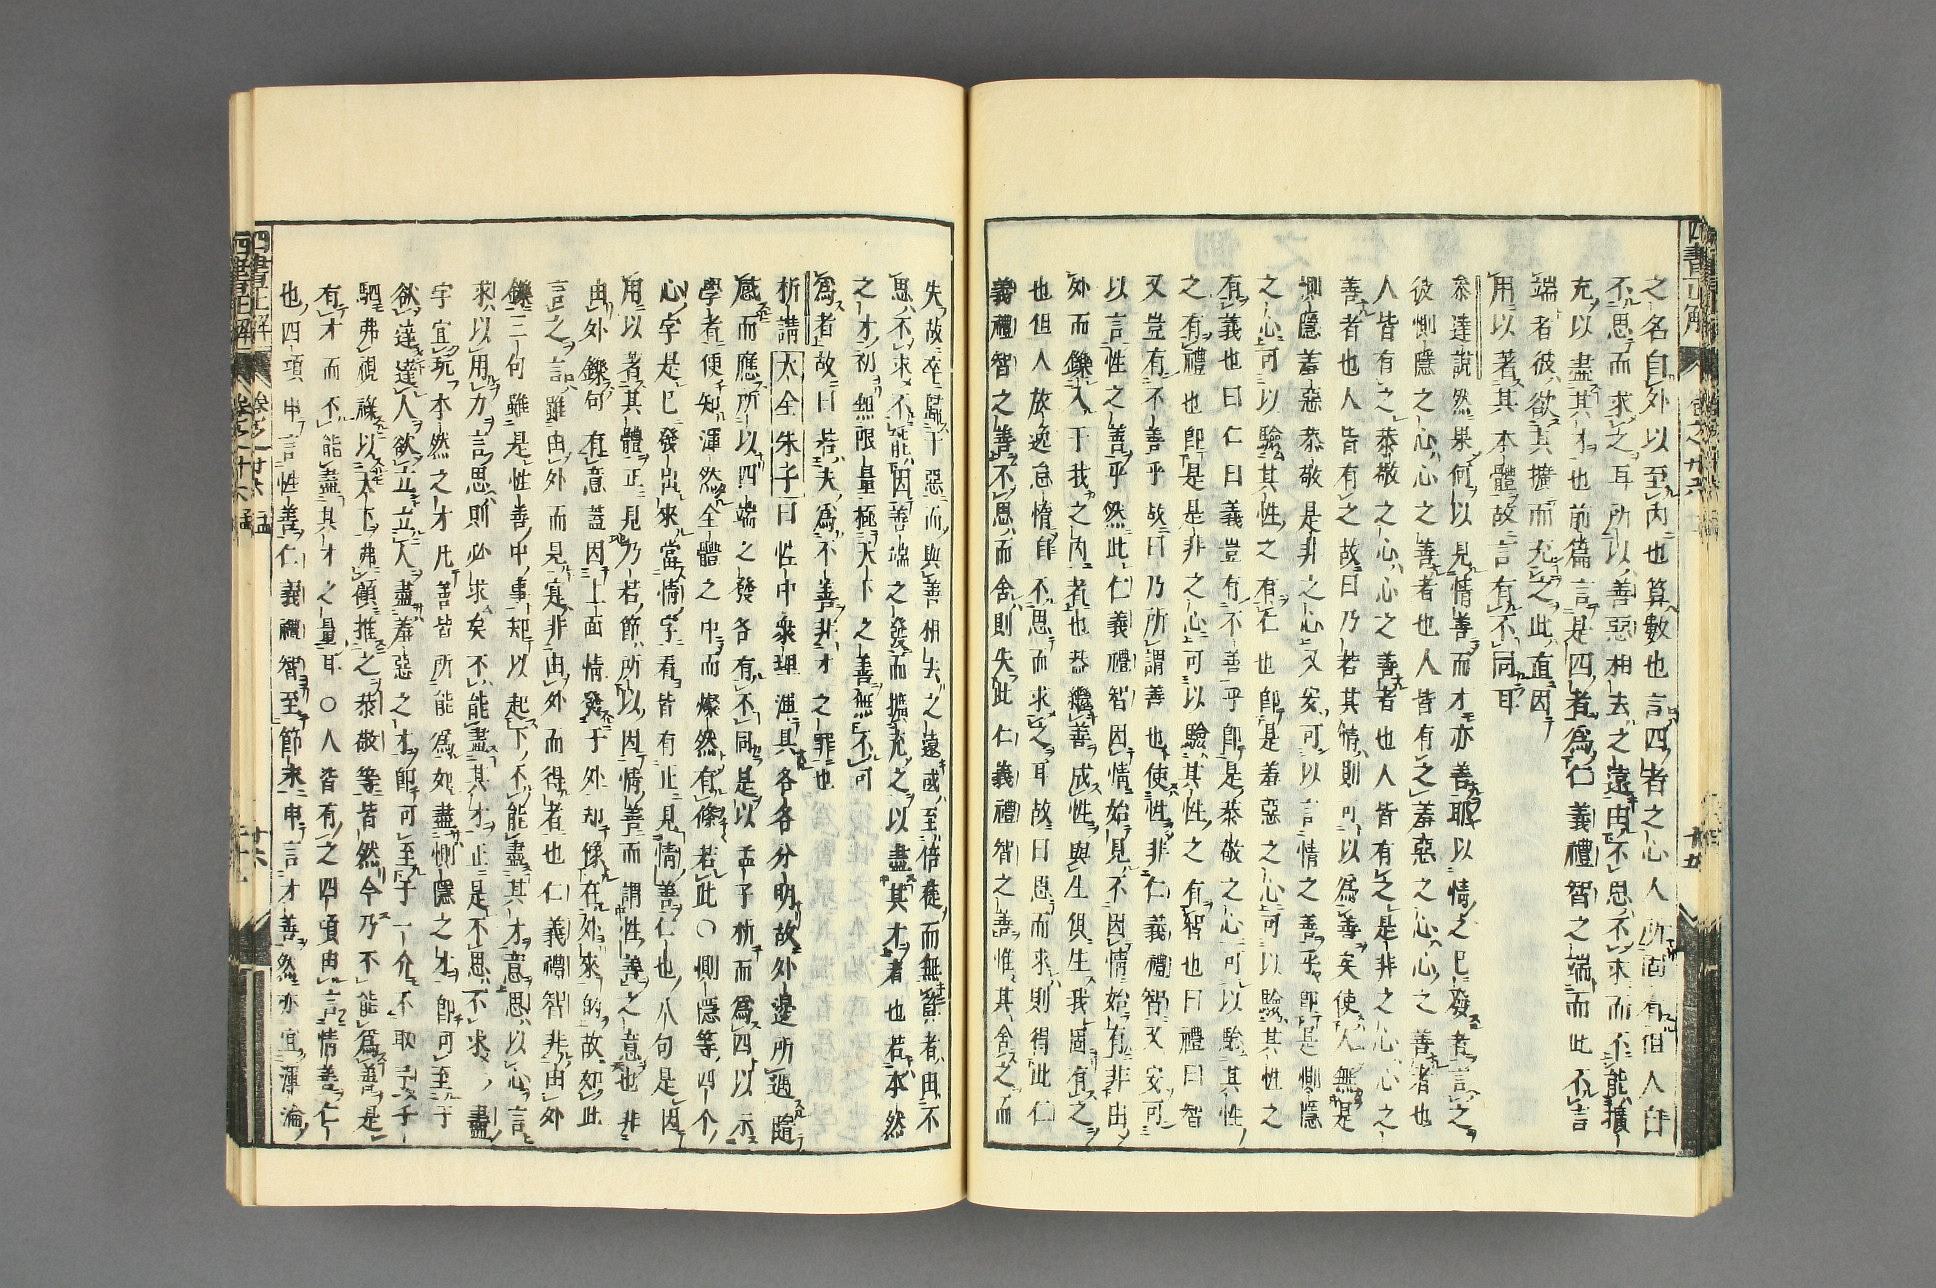 之名自外以至内也算數也言四者之心人所固有但人自
不思而求之耳所以善惡相去之遠由不思不求而不能擴
充以盡其才也前篇言是四者爲仁義禮智之端而此不言
端者彼欲其擴而充之此直因
用以著其本體故言有不同耳
叅達說然果何以見情善而才亦善耶以情之已發者言之
彼惻隱之心心之善者也人皆有之羞惡之心心之善者也
人皆有之恭敬之心心之善者也人皆有之是非之心心之
善者也人皆有之故曰乃若其情則可以爲善矣使人無是
惻隱羞惡恭敬是非之心又安可以言情之善乎卽是惻隱
之心可以驗其性之有仁也卽是羞惡之心可以驗其性之
有義也曰仁曰義豈有不善乎卽是恭敬之心可以驗其性
之有禮也卽是是非之心可以驗其性之有智也曰禮曰智
又豈有不善乎故曰乃所謂善也使性非仁義禮智又安可
以言性之善乎然此仁義禮智因情始見不因情始有非由
外而鑠入于我之内者也㳟繼善成性與生俱生我固有之
也但人放逸怠惰自不思而求之耳故曰思而求則得此仁
義禮智之善不思而舍則失此仁義禮智之善惟其舍之而
失故卒歸于惡而與善相去之遠或至倍蓰而無算者由不
思不求不能因善端之發而擴充之以盡其才者也若本然
之才初無限量極天下之善無不可
爲者故曰若夫爲不善非才之罪也
析講大全朱子曰性中衆理渾具各各分明故外邊所遇隨
感而應所以四端之發各有不同是以孟子析而爲四以示
學者使知渾然全體之中而燦然有條若此〇惻隱等四个
心字是已發出來當情字看皆有止見情善仁也八句是因
用以著其體正見乃若節所以因情善而謂性善之意也非
由外鑠句有意蓋因上面情發于外却像在外來的故如此
言之言雖由外而見寔非由外而得者也仁義禮智非由外
鑠三句雖是性善中事却以起下不能盡其才意思以心言
求以用力言思則必求矣不能盡其才正是不思不求、盡
字宜玩本然之才凡善皆所能爲如盡惻隱之才卽可至于
欲達達人欲立立人盡羞惡之才卽可至于一介不取千
駟弗視祿以天下弗顧推之恭敬等皆然今乃不能爲善是
有才而不能盡其才之量耳〇人皆有之四項由言情善仁
也四項申言性善仁義禮智至節末申言才善然亦宜渾淪